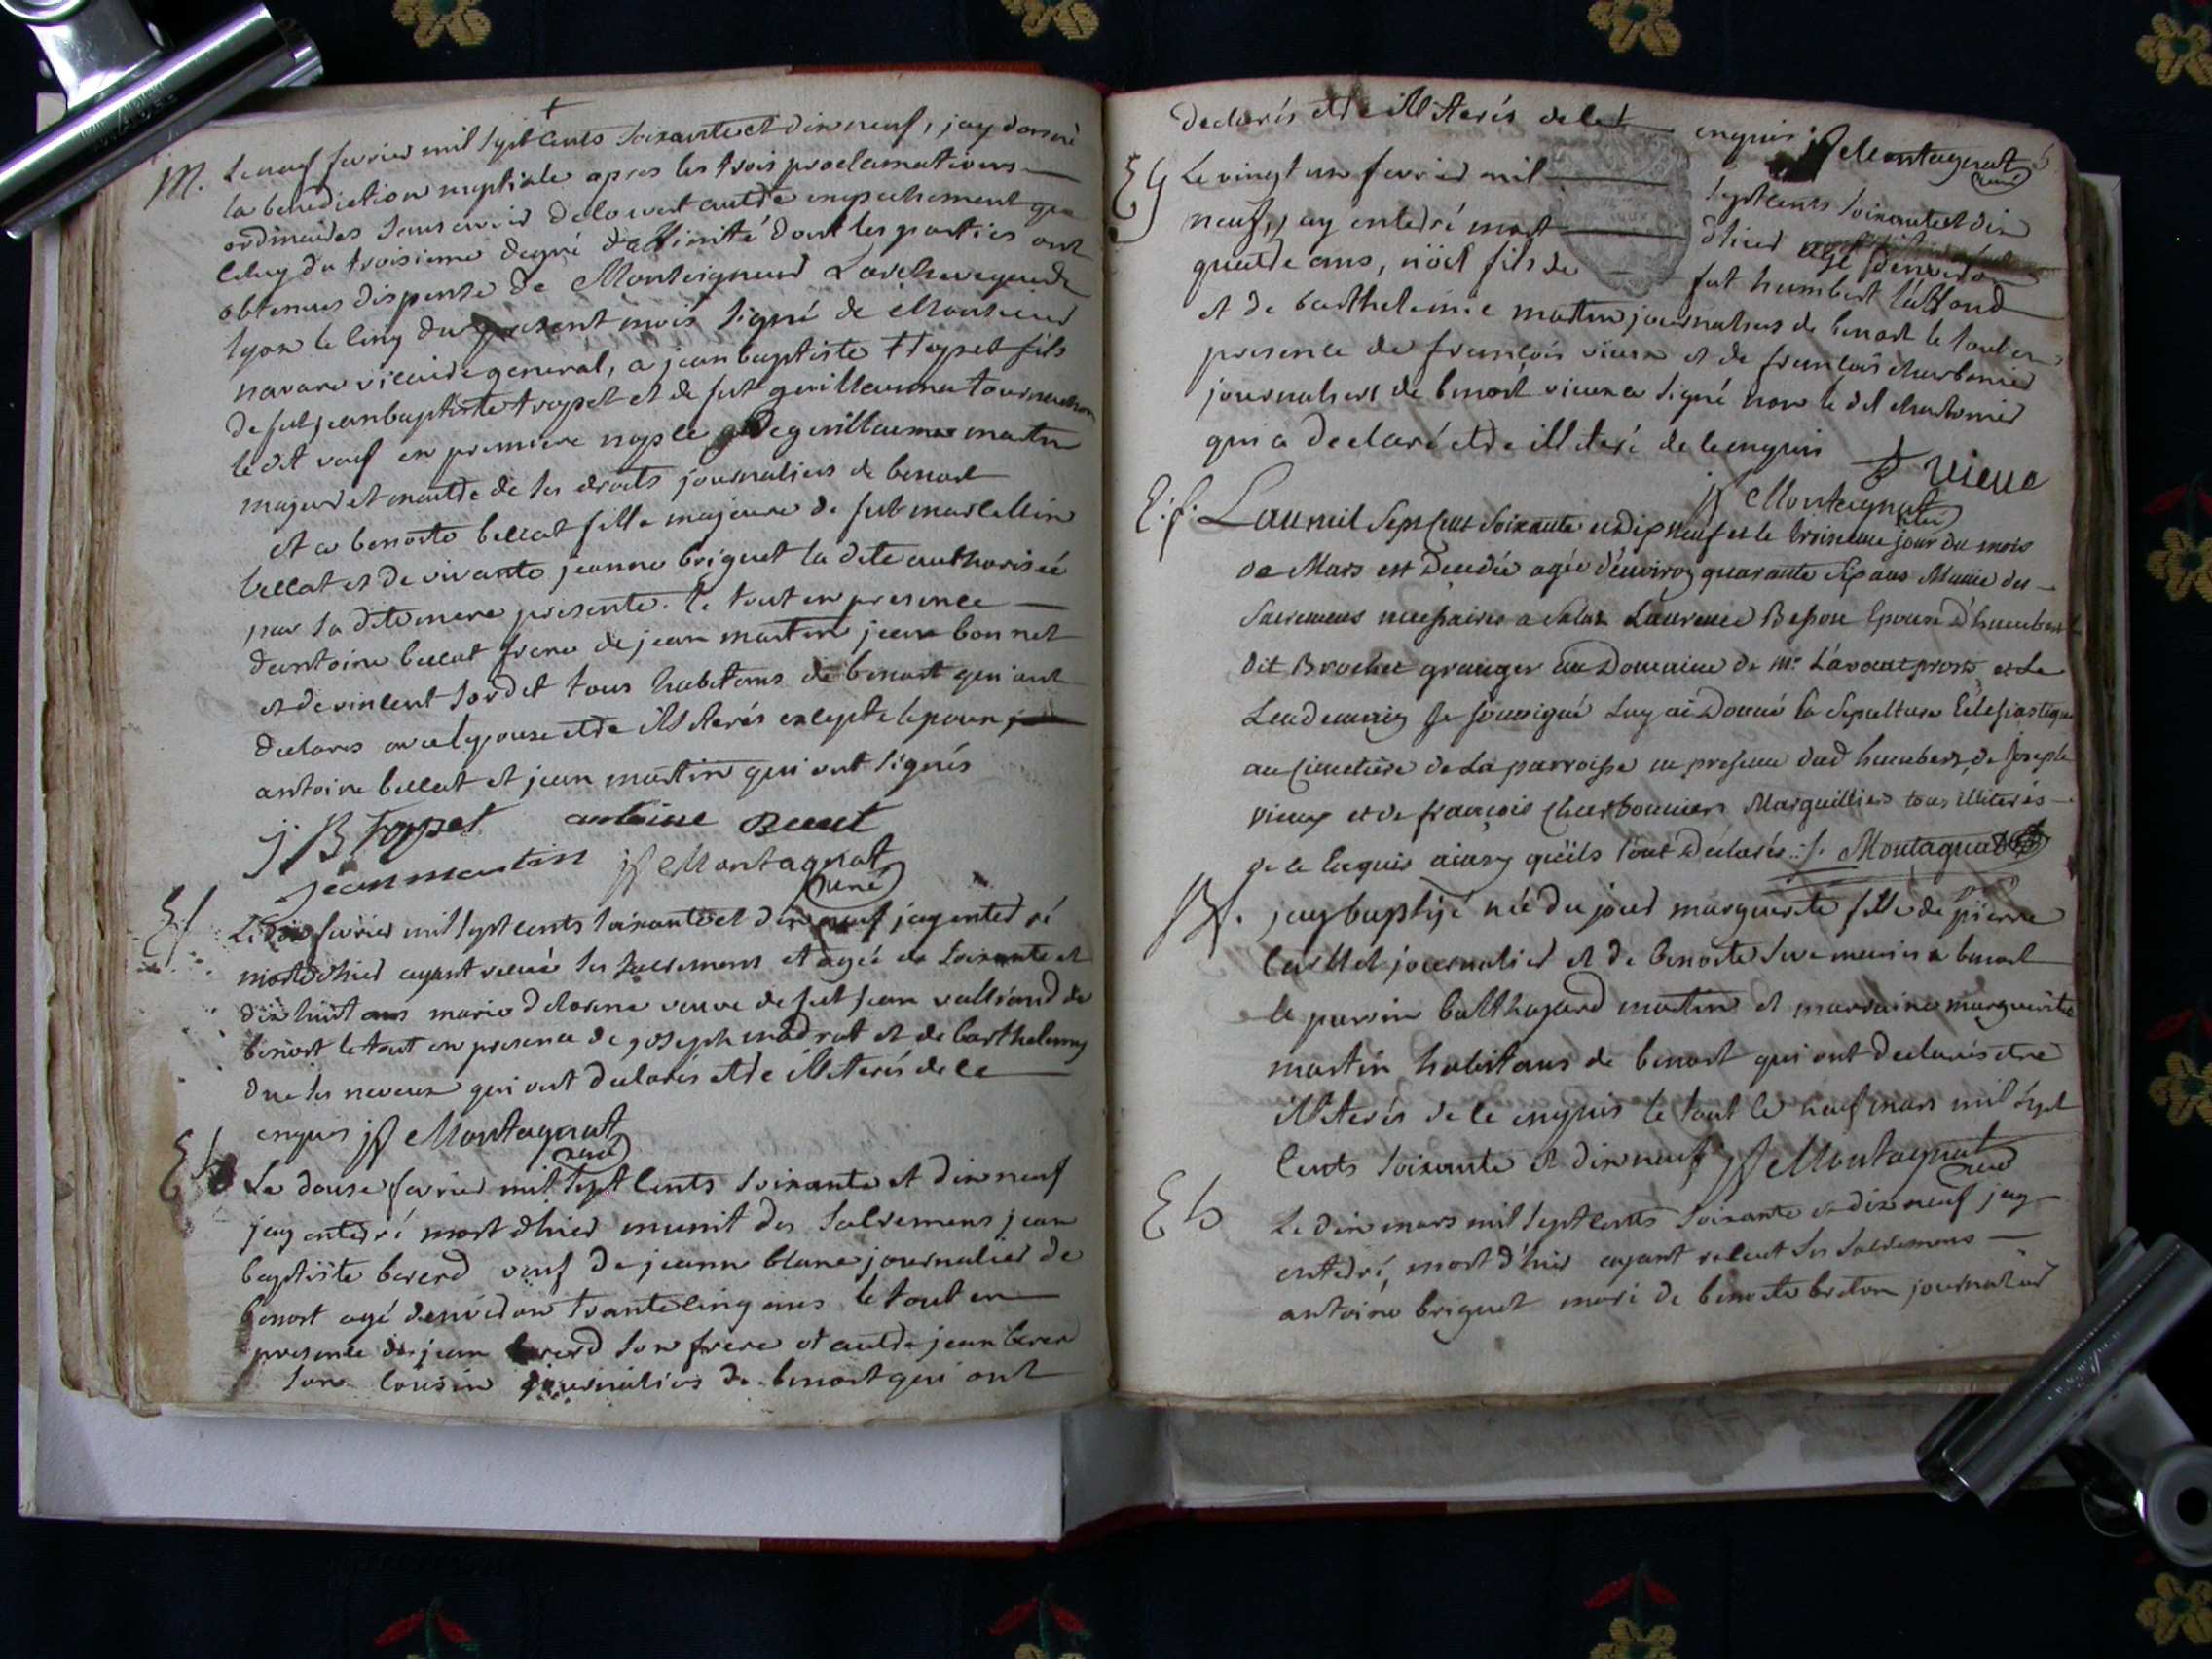 M. Le neuf fevrier mil sept cents soixante et dix neuf, jay donné
la benediction nuptiale apres les trois proclamations
ordinaires sans avoir delouvert autre empechement que
celuy du troisieme degré d'affinité dont les parties ont
obtenus dispense de Monseigneur Larcheveque de
lyon le cinq du present mois signé de Monsieur
navare vicaire general, a jean baptiste tropet fils
de fut jean baptiste tropet et de fut guillauma tournachon
le dit veuf en premiere nopce de guillauma martin
majeur et maitre de ses droits journaliers de benost
et a benoite bellat fille majeure de fut marcellin
bellat et de vivante jeanne briguet la dite authorisée
par sa dite mere presente. le tout en presence
dantoine bellat frere de jean martin jean bonnet
et de vincent sordet tous habitans de benost qui ont
declares avec lepouse etre illiterés excepte lepoux
antoine bellat et jean martin qui ont signés
j B tropet antoine Beeat
jean martin jf Montagnat
curé
E f Le dix fevrier mil sept cents soixante et dix neuf jay enterré
morte dhier ayant recue ses sacremens et agée de soixante et
dix huit ans marie delorme veuve de fut jean vallrand de
benost le tout en presence de joseph madrat et de barthelemy
duc ses neveux qui ont declarés etre illiterés de ce
enquis jf Montagnat
curé
E h Le douse fevrier mil sept cents soixante et dix neuf
jay enterré mort dhier munit des sacremens jean
baptiste bererd veuf de jeanne blanc journalier de
benost agé denviron trante cinq ans le tout en
presence de jean bererd son frere et autre jean berer
son cousin journaliers de benost qui ont
declarés etre illiterés de ce enquis jf Montagnat
curé
E g Le vingt un fevrier mil sept cents soixante et dix
neuf, jay enterré mort dhier agé denviron
quatre ans, nöel fils de fut humbert laffond
et de barthelemie martin journaliers de benost le tout en
presence de francois vieux et de francois charbonier
journaliers de benost vieux a signé non le dit charbonier
qui a declaré etre illiteré de ce enquis
f vieue
jf Montagnat
curé
E. f. L'an mil sept cent soixante et dix neuf et le troisieme jour du mois
de Mars est decedée agée d'environ quarante six ans Munie des
Sacremens necessaires a salut Laurence Besson epouse d'humbert
dit Brochet granger au Domaine de Mr. L'avocat prost, et Le
Lendemain je soussigné Luy ai Donné la Sepulture Eclesiastique
au Cimetiere de La parroisse en presence dud humbert, de Joseph
vieux et de francois Charbonnier Marguilliers tous illiterés
de ce Enquis ainsy qu'ils l'ont Declarés ./. Montagnat
B. jay baptisé née du jour marguerite fille de pierre
journalier et de benoite a benost
le parrin balthazard martin et marraine marguerite
martin habitans de benost qui ont declarés etre
illiterés de ce enquis le tout le neuf mars mil sept
cents soixante et dix neuf jf Montagnat
curé
E h Le dix mars mil sept cents soixante et dix neuf jay
enterré, mort d'hier ayant releut ses sacremens
antoine briguet mari de benoite breton journalier